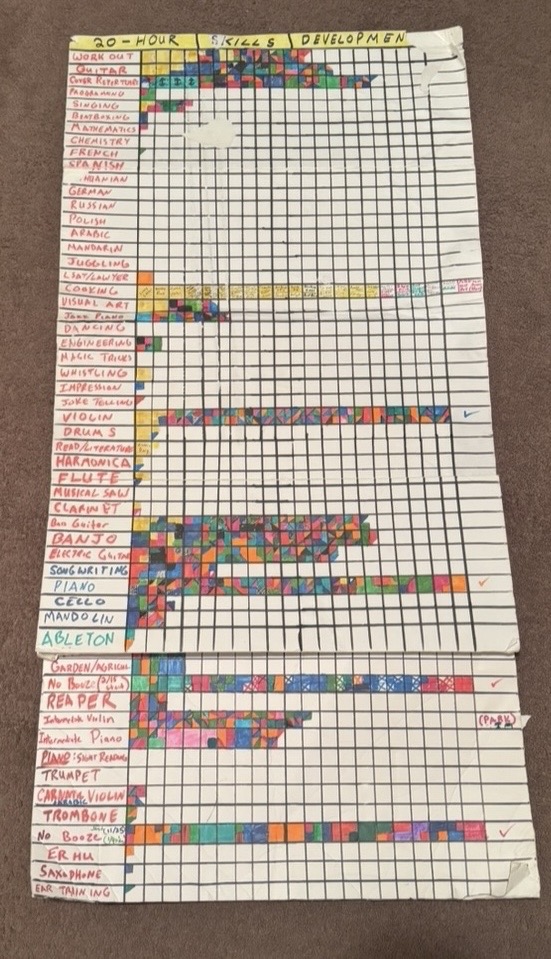 20-HOUR SKILLS DEVELOPMEN
WORK OUT
GUITAR
COVER REPERTOIRE $ $ $
PROGRAMMING
SINGING
BEATBOXING
MATHEMATICS
CHEMISTRY
FRENCH
SPANISH
GERMAN
RUSSIAN
POLISH
ARABIC
MANDARIN
JUGGLING
LSAT/LAWYER
COOKING
VISUAL ART
JAZZ PIANO
DANCING
ENGINEERING
MAGIC TRICKS
WHISTLING
IMPRESSION
JOKE TELLING
VIOLIN ✓
DRUMS
READ/LITERATURE
HARMONICA
FLUTE
MUSICAL SAW
CLARINET
Bass Guitar
BANJO
ELECTRIC GUITAR
SONGWRITING
PIANO ✓
CELLO
MANDOLIN
ABLETON
GARDEN/AGRICUL
No BOOZE ✓
REAPER
Intermediate Violin (PARK)
Intermediate Piano
PIANO: SIGHT READING
TRUMPET
CARNATIC VIOLIN
ARABIC
TROMBONE
No BOOZE ✓
ERHU
SAXOPHONE
EAR TRAINING